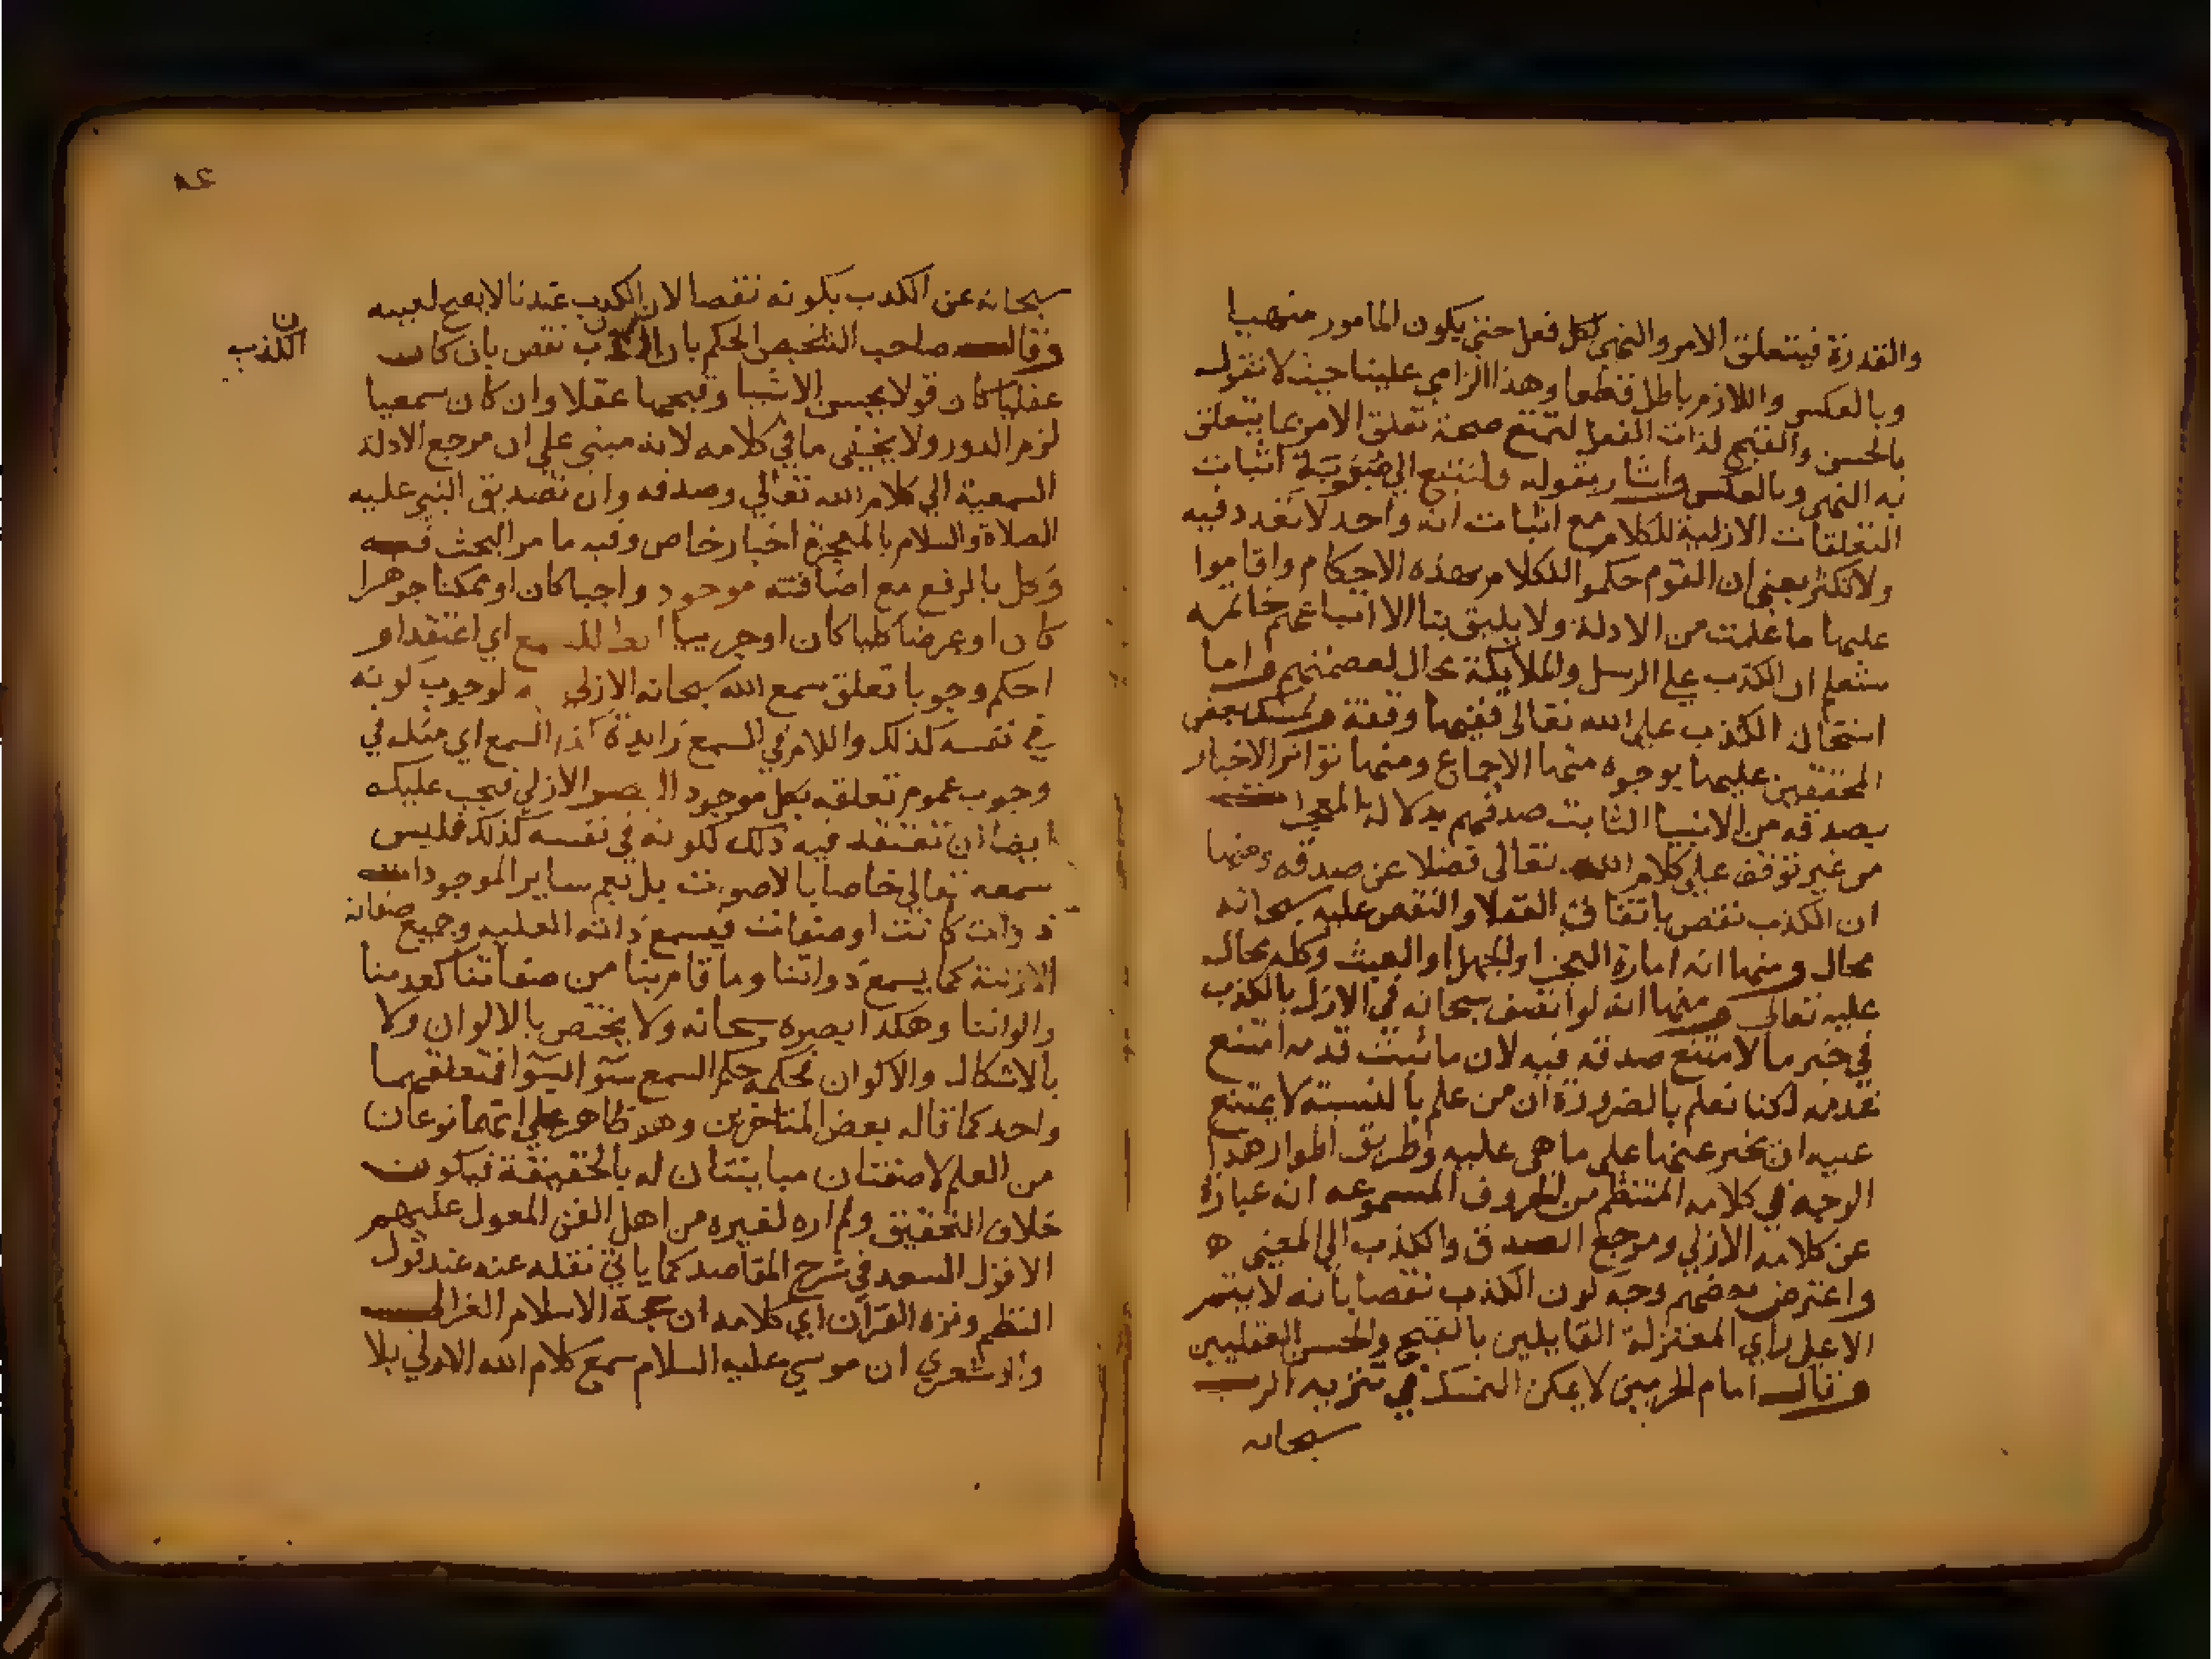 والقدرة فيتعلق الامر والنهي لكل فعل حتى يكون المامور منهيا
وبالعكس واللازم باطل قطعا وهذا الزامي علينا حيث لا نقول
بالحسن والقبح لذات الفعل لتمتنع صحة تعلق الامر بما يتعلق
به النهي وبالعكس واشار بقوله ولنتبع الي اثبات
التعلقات الازلية للكلام مع اثبات انه واحد لا تعدد فيه
ولا تكثر يعني ان القوم حكموا للكلام بهذه الاحكام واقاموا
عليها ما علمت من الادلة ولا يليق بنا الا اتباعهم خاتمه
ستعلم ان الكذب علي الرسل والملايكة محال لعصمتهم واما
استحالة الكذب على الله تعالى ففيها وقفة وتمسك بعض
المحققين عليها بوجوه منها الاجماع ومنها تواتر الاخبار
بصدقه من الانبيا الثابت صدقهم بدلالة المعجزات
من غير توقف على كلام الله تعالى فضلا عن صدقه ومنها
ان الكذب نقص باتفاق العقلا والنقص عليه سبحانه
محال ومنها انه امارة العجز او الجهل او العبث وكله محال
عليه تعالى ومنها انه لو اتصف سبحانه في الازل بالكذب
في خبر ما لامتنع صدقه فيه لان ما ثبت قدمه امتنع
عدمه لكنا نعلم بالضرورة ان من علم بالنسبة لا يمتنع
عليه ان يخبر عنها على ما هي عليه وطريق اطراد هذا
الوجه في كلامه المنتظم من الحروف المسموعه انه عبارة
عن كلامه الازلي ومرجع الصدق والكذب الي المعني ه
واعترض بعضهم وجه كون الكذب نقصا بانه لا يتم
الا على راي المعتزلة القايلين بالقبح والحسن العقليين
وقال امام الحرمين لا يمكن التمسك في تنزيه الرب
سبحانه
٨٤
سبحانه عن الكذب بكونه نقصا لان الكذب عندنا لا يقبح لعينه
وقال صاحب التلخيص الحكم بان الكذب نقص بان كان
ن
الكذب
عقليا كان قولا بحسن الاشيا وقبحها عقلا وان كان سمعيا
لزم الدور ولا يخفى ما في كلامه لانه مبني علي ان مرجع الادلة
السمعية الي كلام الله تعالي وصدقه وان تصديق النبي عليه
الصلاة والسلام بالمعجزة اخبار خاص وفيه ما مر البحث فيه
وكل بالرفع مع اضافته موجود واجبا كان او ممكنا جوهرا
كان او عرضا كليا كان او جزييا للسمع اي اعتقد او
احكم وجوبا تعلق سمع الله سبحانه الازلي به لوجوب كونه
في نفسه كذلك واللام في السمع زايدة كذا السمع اي مثله في
وجوب عموم تعلقه بكل موجود البصر الازلي فيجب عليك
ايضا ان تعتقد فيه ذلك لكونه في نفسه كذلك فليس
سمعه تعالي خاصا بالاصوت بل يعم ساير الموجودات
ذوات كانت او صفات فيسمع ذاته العليه وجميع صفاته
الازلية كما يسمع ذواتنا وما قام بنا من صفاتنا كعلمنا
والواننا وهكذا بصره سبحانه ولا يختص بالالوان ولا
بالاشكال والاكوان فحكمه حكم السمع سوا بسوا فتعلقهما
واحد كما قاله بعض المتاخرين وهو ظاهر علي انهما نوعان
من العلم لا صفتان مباينتان له بالحقيقة فيكون
خلاف التحقيق ولم اره لغيره من اهل الفن المعول عليهم
الا قول السعد في شرح المقاصد كما ياتي نقله عنه عند قول
النظم ونزه القران اي كلامه ان حجة الاسلام الغزالي
والاشعري ان موسي عليه السلام سمع كلام الله الازلي بلا